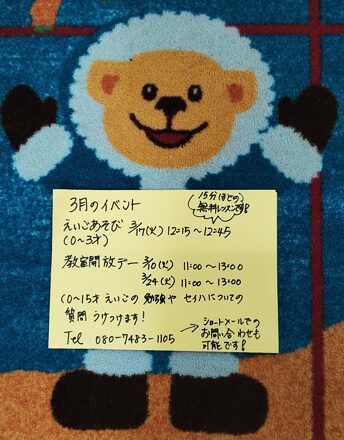 3月のイベント
15分ほどの
無料レッスンです!
えいごあそび 3/17(火) 12:15～12:45
(0～3才)
教室開放デー 3/10(火) 11:00～13:00
3/24(火) 11:00～13:00
(0～15才 えいごの勉強や セイハについての
質問 うけつけます!
Tel 080-7483-1105
→ ショートメールでの
お問い合わせも
可能です!